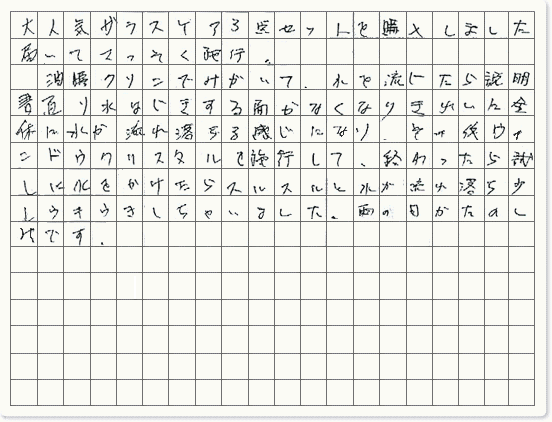 大人気ガラスケア3点セットを購入しました
届いてさっそく施行。
油膜クリンでみがいて、水を流したら説明
書通り水はじきする面がなくなりきれいに全
体に水が流れ落ちる感じになり、その後ウィ
ンドウクリスタルを施行して、終わったら試
しに水をかけたらスルスルと水が流れ落ち少
しウキウキしちゃいました。雨の日がたのし
みです。